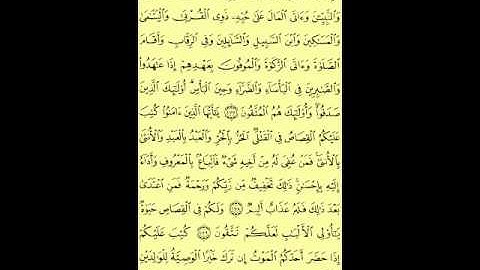 وَٱلنَّبِيِّـۧنَ وَءَاتَى ٱلْمَالَ عَلَىٰ حُبِّهِۦ ذَوِى ٱلْقُرْبَىٰ وَٱلْيَتَـٰمَىٰ
وَٱلْمَسَـٰكِينَ وَٱبْنَ ٱلسَّبِيلِ وَٱلسَّآئِلِينَ وَفِى ٱلرِّقَابِ وَأَقَامَ
ٱلصَّلَوٰةَ وَءَاتَى ٱلزَّكَوٰةَ وَٱلْمُوفُونَ بِعَهْدِهِمْ إِذَا عَـٰهَدُوا۟
وَٱلصَّـٰبِرِينَ فِى ٱلْبَأْسَآءِ وَٱلضَّرَّآءِ وَحِينَ ٱلْبَأْسِ ۗ أُو۟لَـٰٓئِكَ ٱلَّذِينَ
صَدَقُوا۟ ۖ وَأُو۟لَـٰٓئِكَ هُمُ ٱلْمُتَّقُونَ ﴿١٧٧﴾ يَـٰٓأَيُّهَا ٱلَّذِينَ ءَامَنُوا۟ كُتِبَ
عَلَيْكُمُ ٱلْقِصَاصُ فِى ٱلْقَتْلَى ۖ ٱلْحُرُّ بِٱلْحُرِّ وَٱلْعَبْدُ بِٱلْعَبْدِ وَٱلْأُنثَىٰ
بِٱلْأُنثَىٰ ۚ فَمَنْ عُفِىَ لَهُۥ مِنْ أَخِيهِ شَىْءٌ فَٱتِّبَاعٌۢ بِٱلْمَعْرُوفِ وَأَدَآءٌ
إِلَيْهِ بِإِحْسَـٰنٍ ۗ ذَٰلِكَ تَخْفِيفٌ مِّن رَّبِّكُمْ وَرَحْمَةٌ ۗ فَمَنِ ٱعْتَدَىٰ
بَعْدَ ذَٰلِكَ فَلَهُۥ عَذَابٌ أَلِيمٌ ﴿١٧٨﴾ وَلَكُمْ فِى ٱلْقِصَاصِ حَيَوٰةٌ
يَـٰٓأُو۟لِى ٱلْأَلْبَـٰبِ لَعَلَّكُمْ تَتَّقُونَ ﴿١٧٩﴾ كُتِبَ عَلَيْكُمْ
إِذَا حَضَرَ أَحَدَكُمُ ٱلْمَوْتُ إِن تَرَكَ خَيْرًا ٱلْوَصِيَّةُ لِلْوَٰلِدَيْنِ